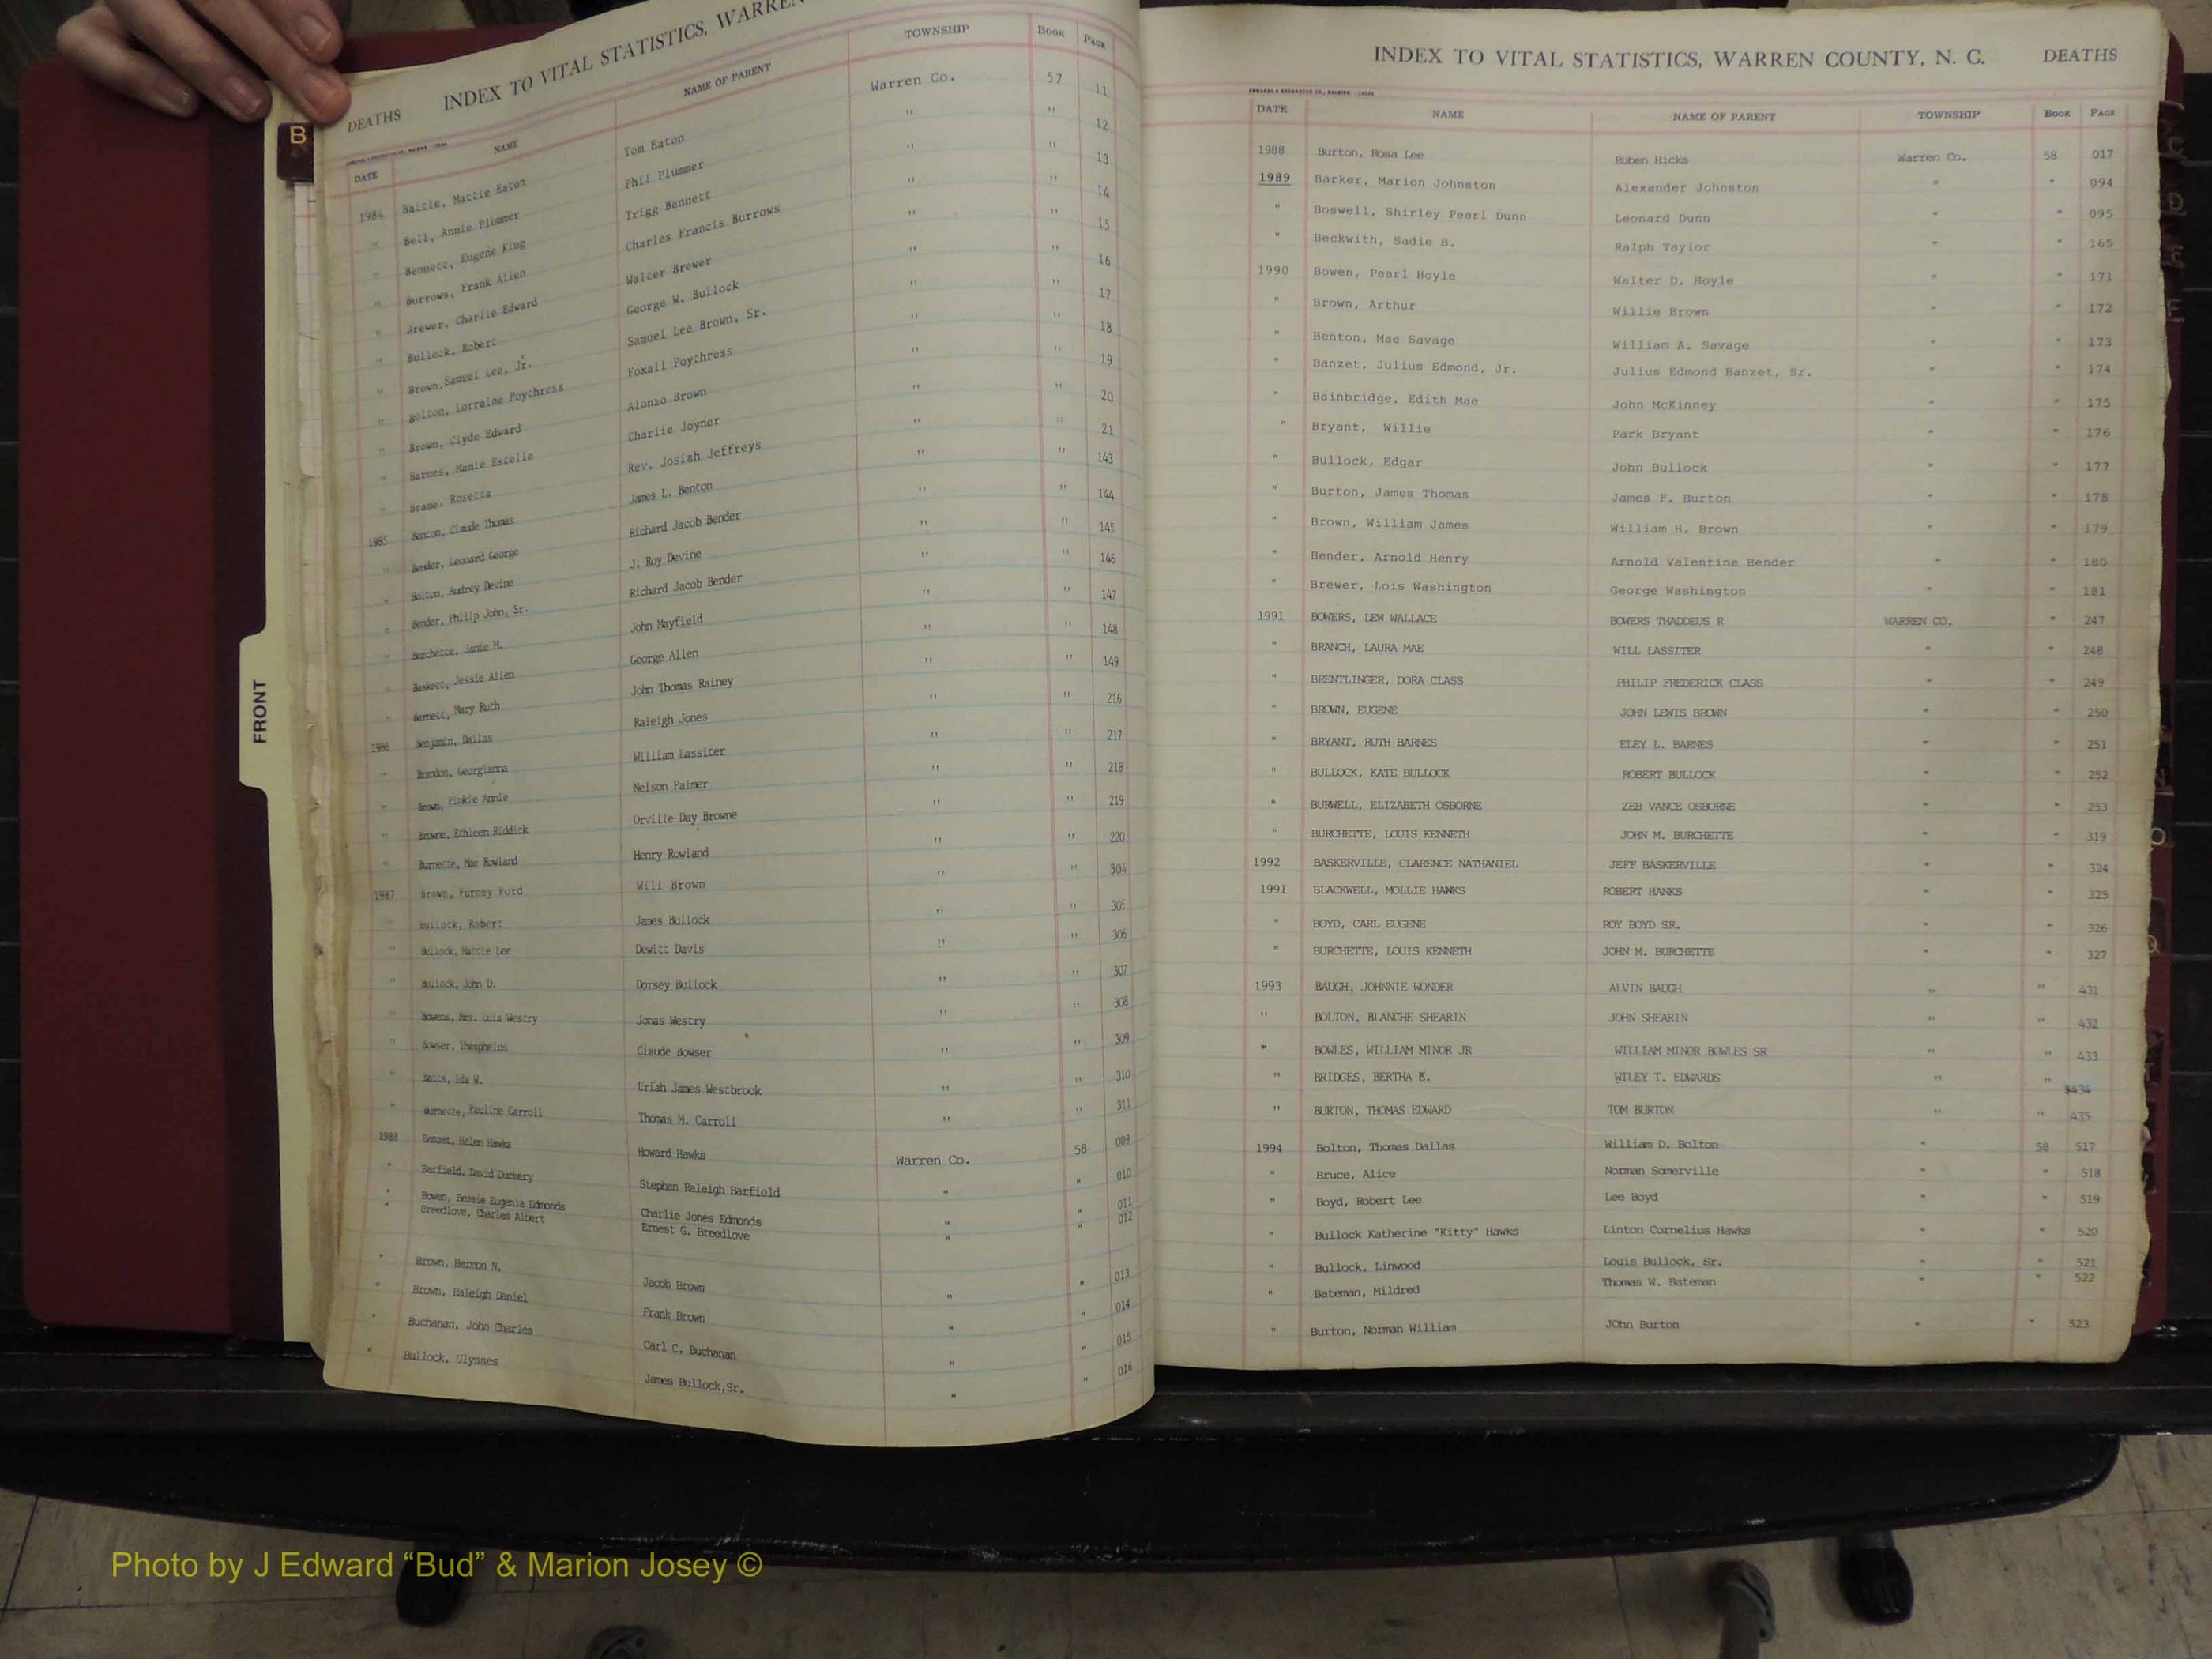 DEATHS INDEX TO VITAL STATISTICS, WARREN
DATE NAME NAME OF PARENT TOWNSHIP BOOK PAGE
1984 Battle, Mattie Eaton Tom Eaton Warren Co. 57 11
" Bell, Annie Plummer Phil Plummer " " 12
" Bennett, Eugene King Trigg Bennett " " 13
" Burrows, Frank Allen Charles Francis Burrows " " 14
" Brewer, Charlie Edward Walter Brewer " " 15
" Bullock, Robert George W. Bullock " " 16
" Brown,Samuel Lee, Jr. Samuel Lee Brown, Sr. " " 17
" Bolton, Lorraine Poythress Foxall Poythress " " 18
" Brown, Clyde Edward Alonzo Brown " " 19
" Barnes, Mamie Estelle Charlie Joyner " " 20
" Brame, Rosetta Rev. Josiah Jeffreys " " 21
1985 Benton, Claude Thomas James L. Benton " " 143
" Bender, Leonard George Richard Jacob Bender " " 144
" Bolton, Audrey Devine J. Roy Devine " " 145
" Bender, Philip John, Sr. Richard Jacob Bender " " 146
" Burchette, Janie M. John Mayfield " " 147
" Baskett, Jessie Allen George Allen " " 148
" Bennett, Mary Ruth John Thomas Rainey " " 149
1986 Benjamin, Dallas Raleigh Jones " " 216
" Brandon, Georgianna William Lassiter " " 217
" Brown, Pinkie Annie Nelson Palmer " " 218
" Browne, Ethleen Riddick Orville Day Browne " " 219
" Burnette, Mae Rowland Henry Rowland " " 220
1987 Brown, Furney Ford Will Brown " " 304
" Bullock, Robert James Bullock " " 305
" Bullock, Mattie Lee Dewitt Davis " " 306
" Bullock, John D. Dorsey Bullock " " 307
" Bowens, Mrs. Lula Westry Jonas Westry " " 308
" Bowser, Thesphelus Claude Bowser " " 309
" Batts, Ida W. Uriah James Westbrook " " 310
" Burnette, Pauline Carroll Thomas M. Carroll " " 311
1988 Banzet, Helen Hawks Howard Hawks Warren Co. 58 009
" Barfield, David Duckery Stephen Raleigh Barfield " " 010
" Bowen, Bessie Eugenia Edmonds Charlie Jones Edmonds " " 011
" Breedlove, Charles Albert Ernest G. Breedlove " " 012
" Brown, Hermon N. Jacob Brown " " 013
" Brown, Raleigh Daniel Frank Brown " " 014
" Buchanan, John Charles Carl C. Buchanan " " 015
" Bullock, Ulysses James Bullock,Sr. " " 016
B
FRONT
INDEX TO VITAL STATISTICS, WARREN COUNTY, N. C. DEATHS
DATE NAME NAME OF PARENT TOWNSHIP BOOK PAGE
1988 Burton, Rosa Lee Ruben Hicks Warren Co. 58 017
1989 Barker, Marion Johnston Alexander Johnston " " 094
" Boswell, Shirley Pearl Dunn Leonard Dunn " " 095
" Beckwith, Sadie B. Ralph Taylor " " 165
1990 Bowen, Pearl Hoyle Walter D. Hoyle " " 171
" Brown, Arthur Willie Brown " " 172
" Benton, Mae Savage William A. Savage " " 173
" Banzet, Julius Edmond, Jr. Julius Edmond Banzet, Sr. " " 174
" Bainbridge, Edith Mae John McKinney " " 175
" Bryant, Willie Park Bryant " " 176
" Bullock, Edgar John Bullock " " 177
" Burton, James Thomas James F. Burton " " 178
" Brown, William James William H. Brown " " 179
" Bender, Arnold Henry Arnold Valentine Bender " " 180
" Brewer, Lois Washington George Washington " " 181
1991 BOWERS, LEW WALLACE BOWERS THADDEUS R WARREN CO. " 247
" BRANCH, LAURA MAE WILL LASSITER " " 248
" BRENTLINGER, DORA CLASS PHILIP FREDERICK CLASS " " 249
" BROWN, EUGENE JOHN LEWIS BROWN " " 250
" BRYANT, RUTH BARNES ELEY L. BARNES " " 251
" BULLOCK, KATE BULLOCK ROBERT BULLOCK " " 252
" BURWELL, ELIZABETH OSBORNE ZEB VANCE OSBORNE " " 253
" BURCHETTE, LOUIS KENNETH JOHN M. BURCHETTE " " 319
1992 BASKERVILLE, CLARENCE NATHANIEL JEFF BASKERVILLE " " 324
1991 BLACKWELL, MOLLIE HANKS ROBERT HANKS " " 325
" BOYD, CARL EUGENE ROY BOYD SR. " " 326
" BURCHETTE, LOUIS KENNETH JOHN M. BURCHETTE " " 327
1993 BAUGH, JOHNNIE WONDER ALVIN BAUGH " " 431
" BOLTON, BLANCHE SHEARIN JOHN SHEARIN " " 432
" BOWLES, WILLIAM MINOR JR WILLIAM MINOR BOWLES SR " " 433
" BRIDGES, BERTHA E. WILEY T. EDWARDS " " 434
" BURTON, THOMAS EDWARD TOM BURTON " " 435
1994 Bolton, Thomas Dallas William D. Bolton " 58 517
" Bruce, Alice Norman Somerville " " 518
" Boyd, Robert Lee Lee Boyd " " 519
" Bullock Katherine "Kitty" Hawks Linton Cornelius Hawks " " 520
" Bullock, Linwood Louis Bullock, Sr. " " 521
" Bateman, Mildred Thomas W. Bateman " " 522
" Burton, Norman William JOhn Burton " " 523
Photo by J Edward “Bud” & Marion Josey ©